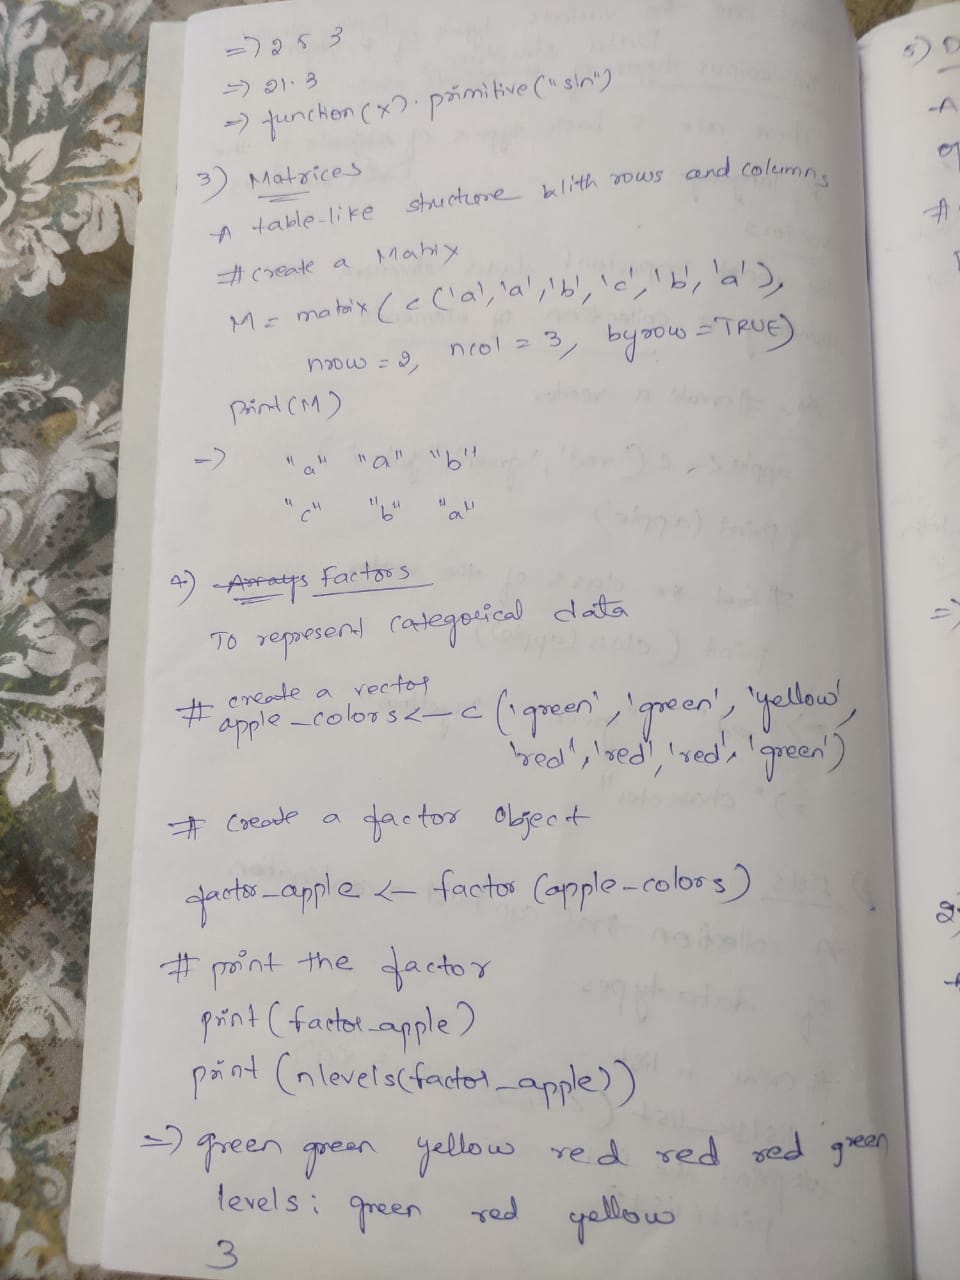 => 2 5 3
=> 21.3
=> function (x). primitive ("sin")
3) Matrices
A table-like structure with rows and columns
# create a Matrix
M = matrix ( c ('a', 'a', 'b', 'c', 'b', 'a'),
nrow = 2, ncol = 3, byrow = TRUE)
print (M)
=> "a" "a" "b"
"c" "b" "a"
4) Arrays Factors
To represent categorical data
# create a vector
apple_colors <- c ('green', 'green', 'yellow',
'red', 'red', 'red', 'green')
# create a factor object
factor_apple <- factor (apple_colors)
# print the factor
print (factor_apple)
print (nlevels(factor_apple))
=> green green yellow red red red green
levels: green red yellow
3
5) D
-A
#
=>
2